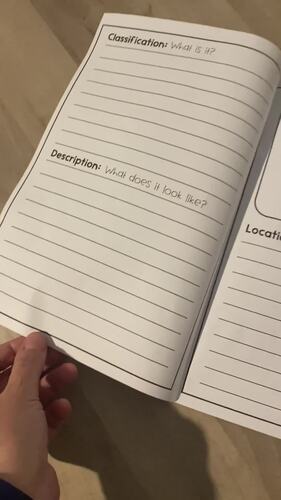 Classification: What is it?
Description: What does it look like?